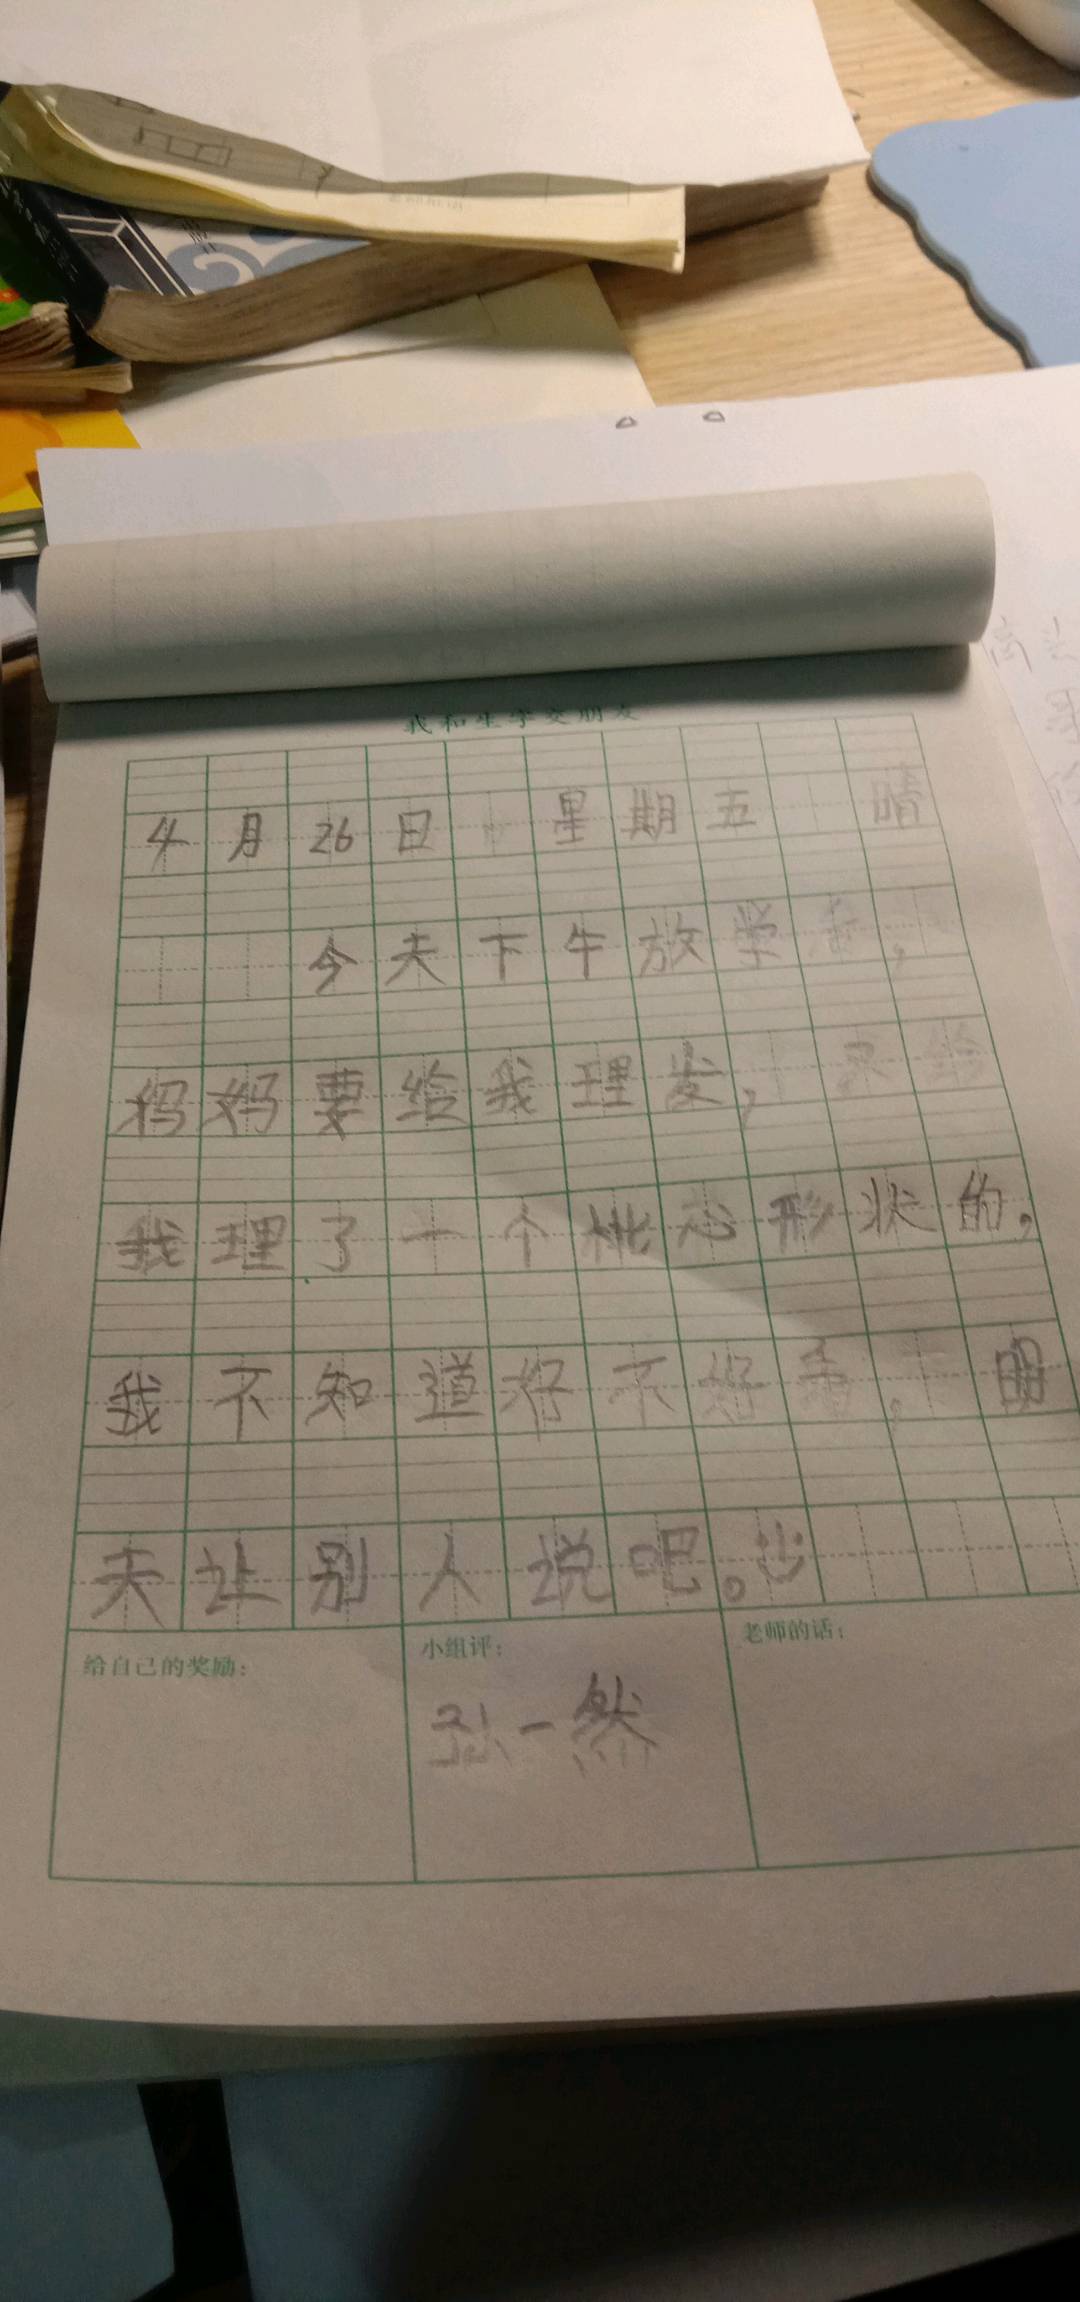 我和生字交朋友
4月26日 星期五 晴
今天下午放学后，
妈妈要给我理发，又给
我理了一个桃心形状的，
我不知道好不好看，明
天让别人说吧。
给自己的奖励：
小组评：
老师的话：
孙一然